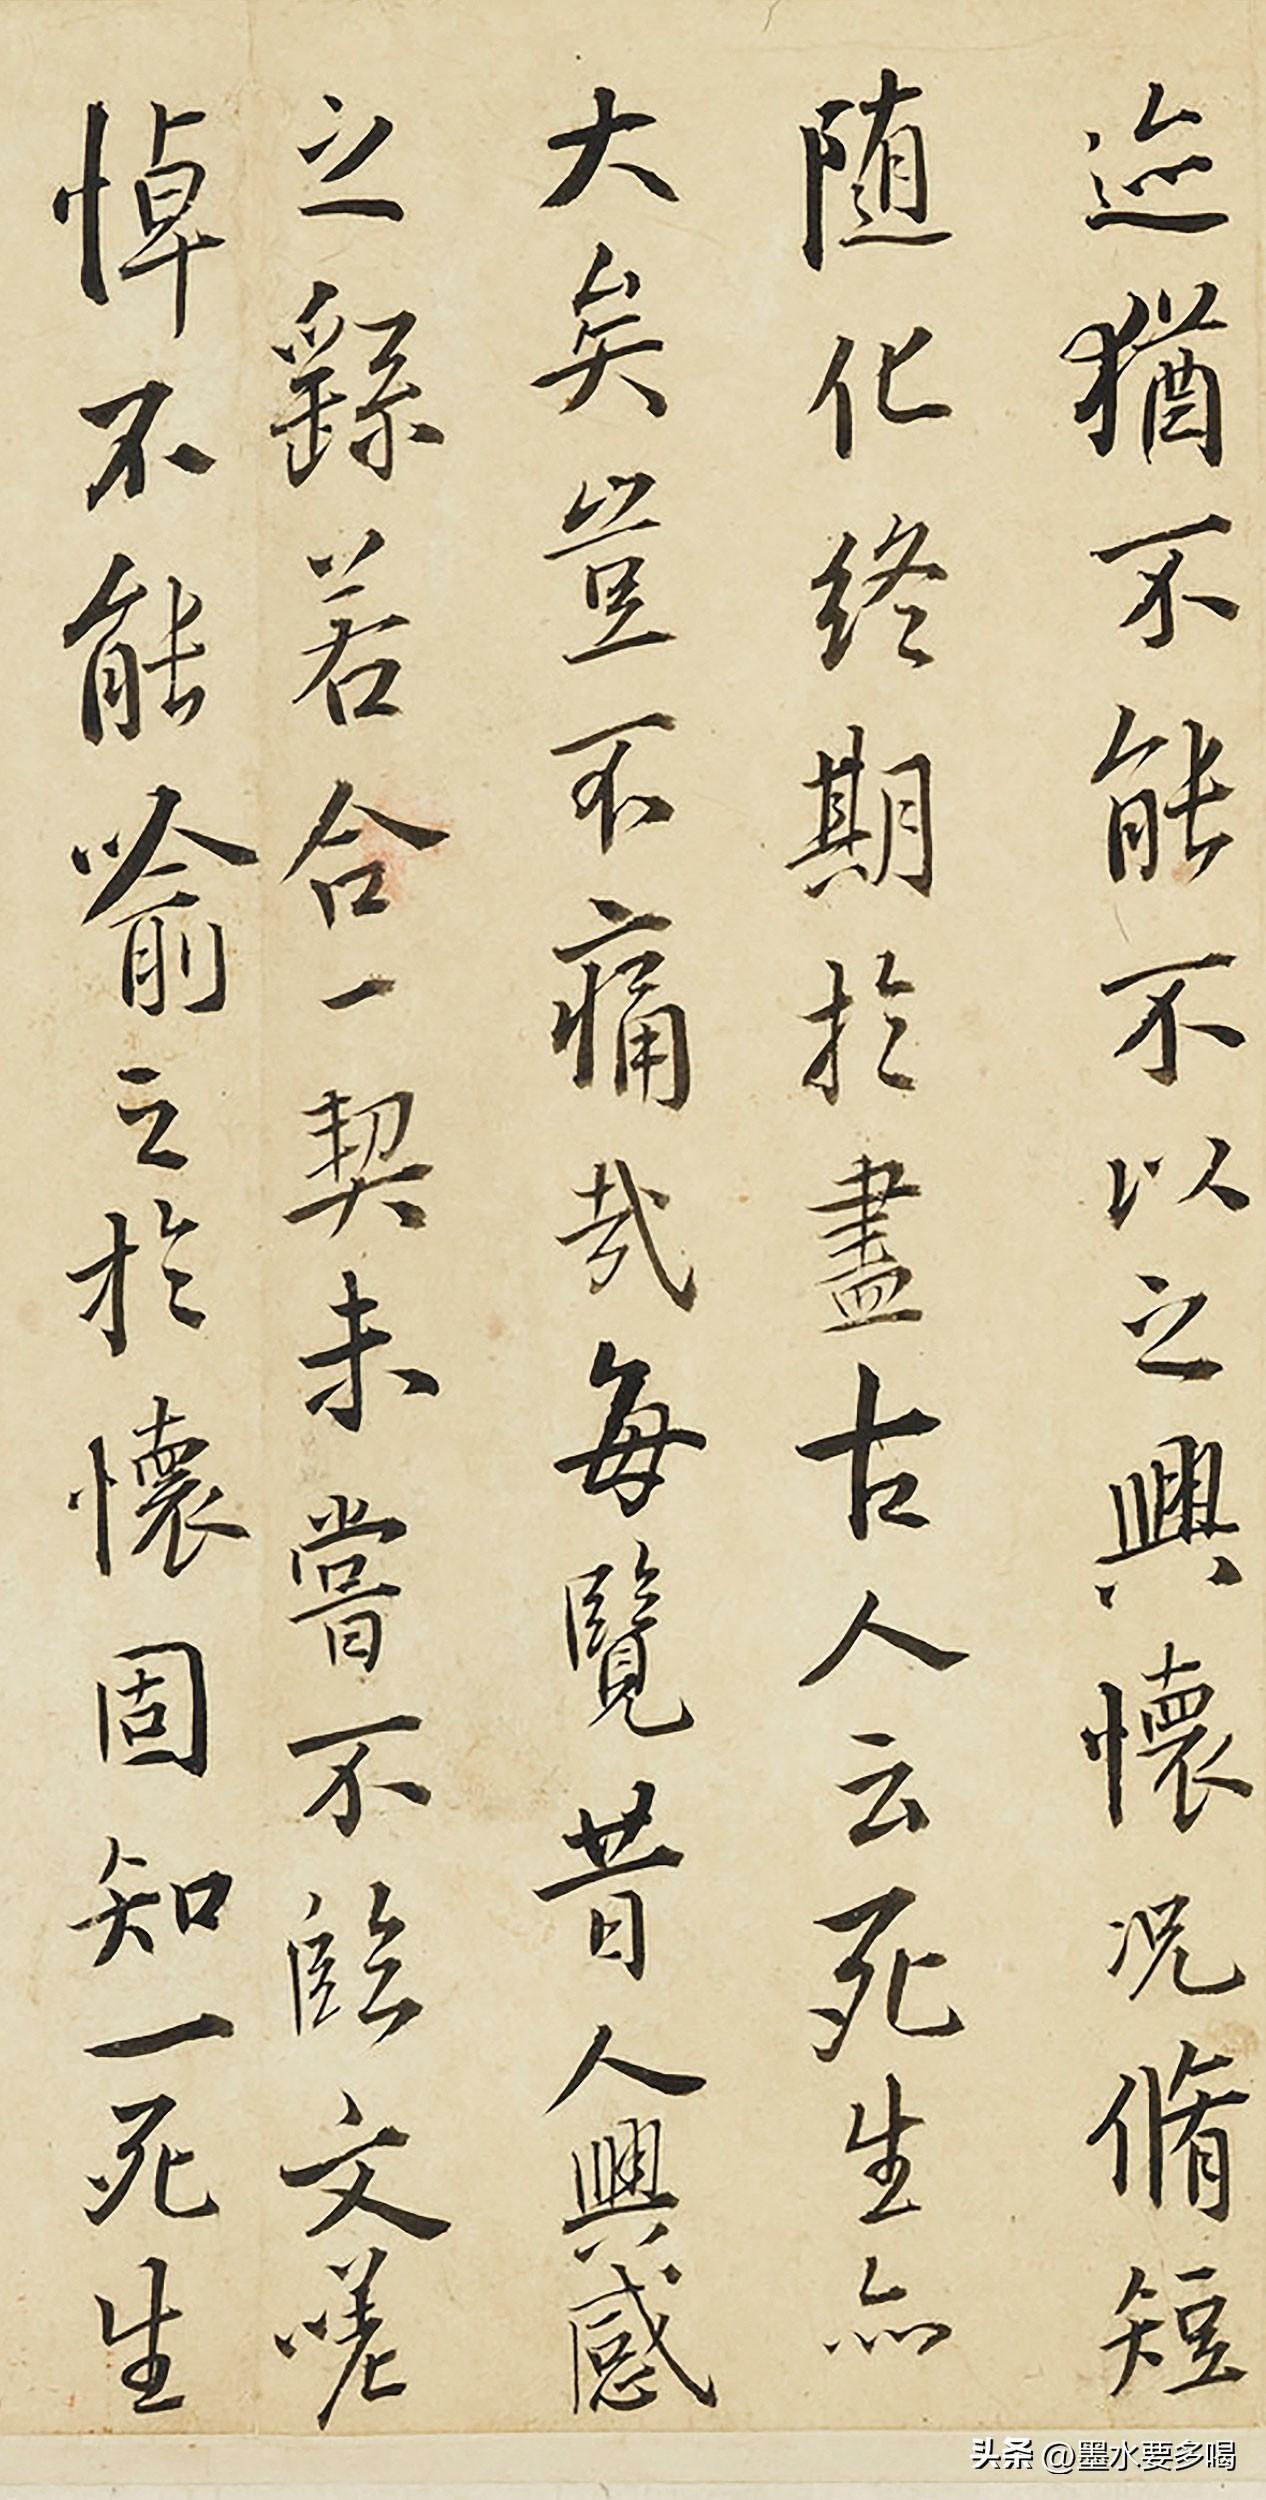 迹猶不能不以之興懷况脩短
随化終期於盡古人云死生亦
大矣豈不痛哉每覽昔人興感
之繇若合一契未嘗不臨文嗟
悼不能喻之於懷固知一死生
头条 @墨水要多喝